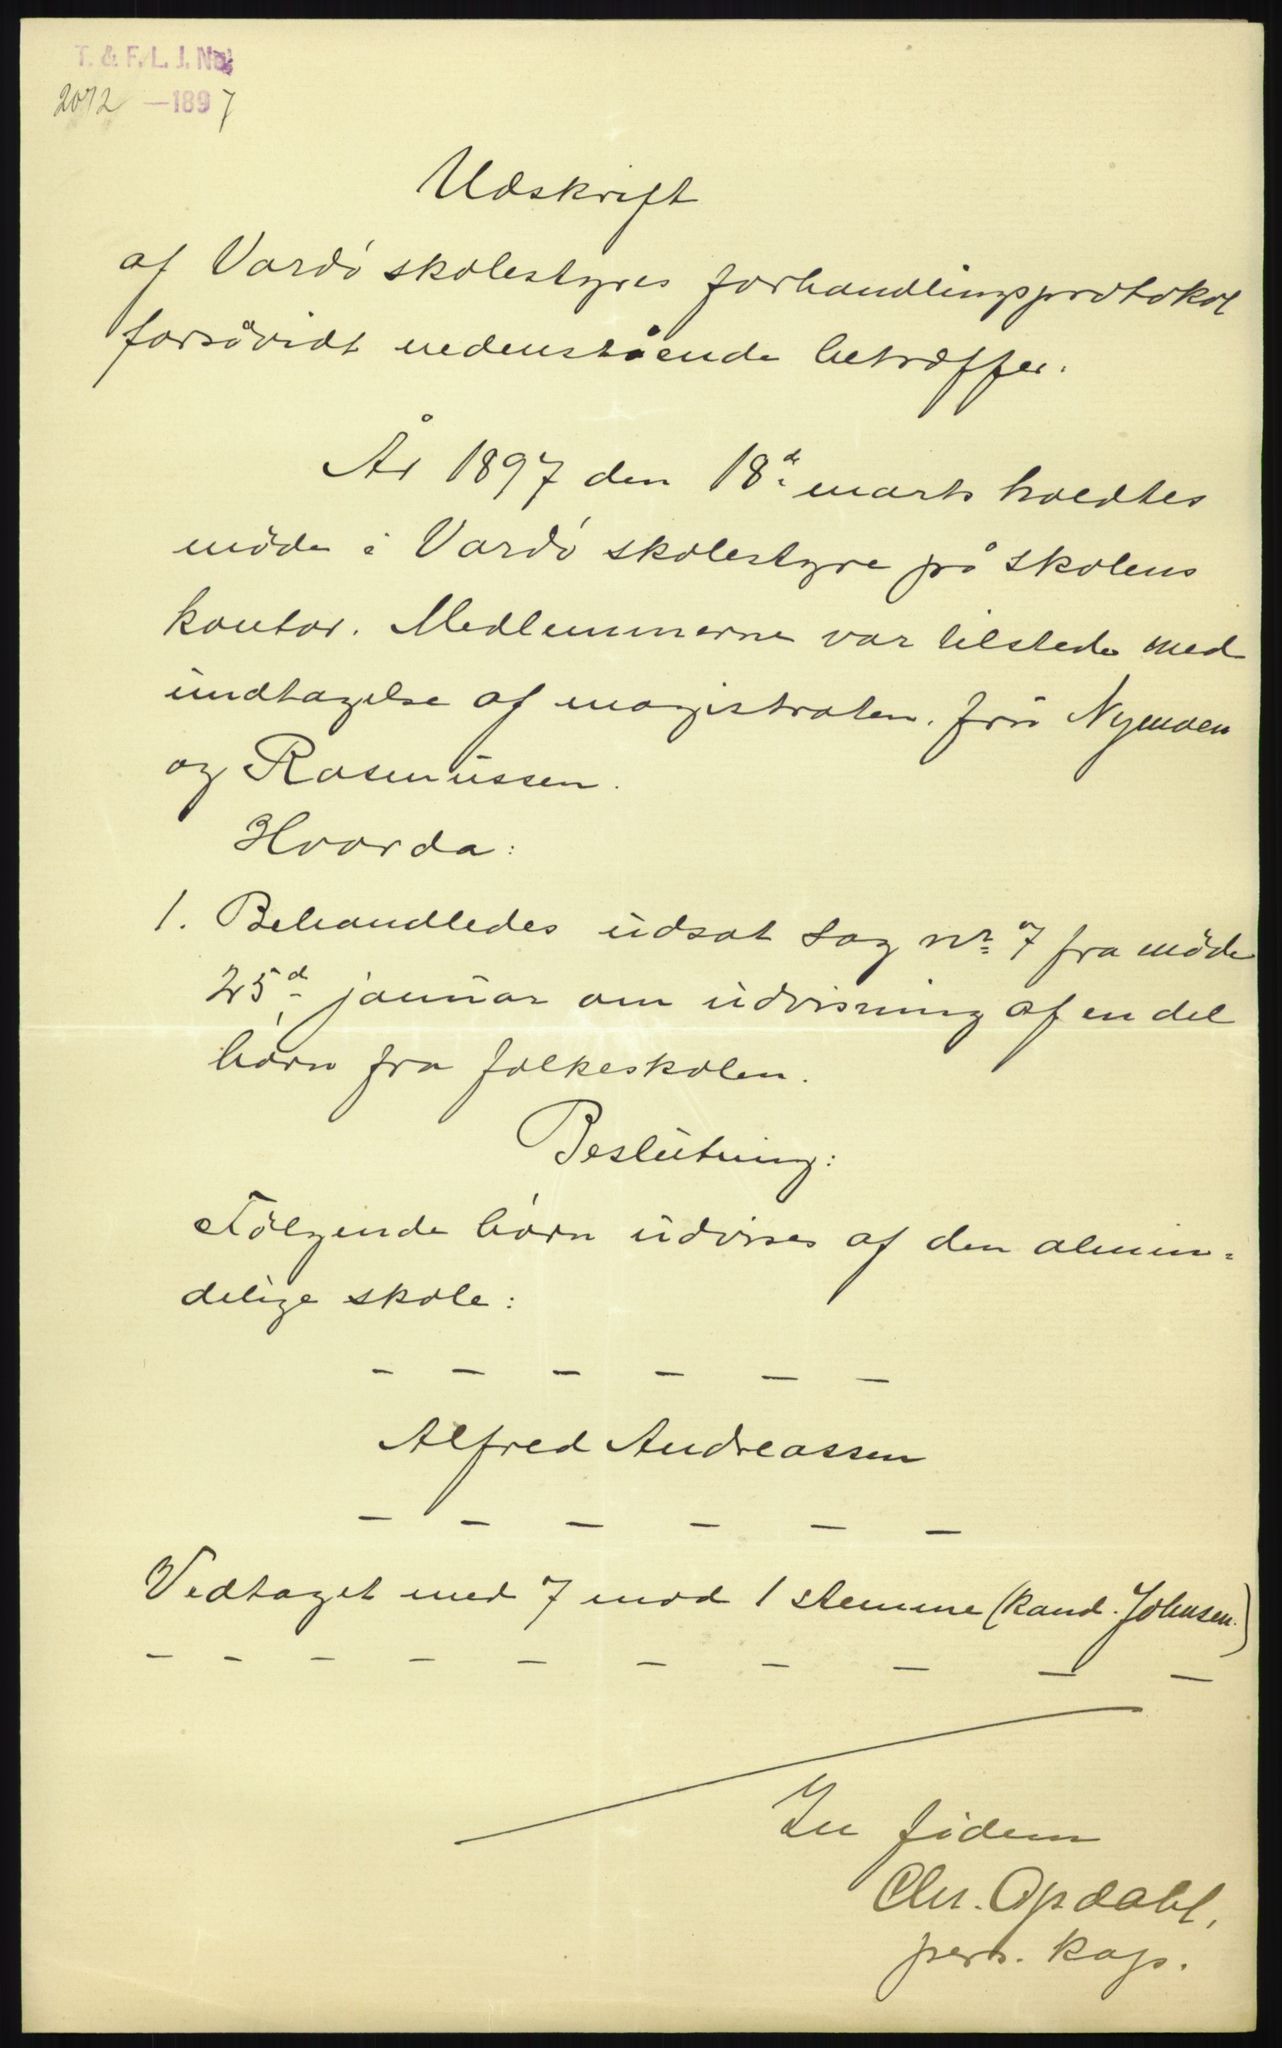 T. & F. L. J. No.
2072 —1897
Udskrift
af Vardö skolestyres forhandlingsprotokol
forsåvidt nedenstående betræffer.
År 1897 den 18d marts holdtes
möde i Vardö skolestyre på skolens
kontor. Medlemmerne var tilstede med
undtagelse af magistraten, frü Nymoen
og Rasmussen.
Hvorda:
1. Behandledes udsat sag nr. 7 fra möde
25d januar om udvisning af en del
börn fra folkeskolen.
Beslutning:
Fölgende börn udvises af den almin=
delige skole:
– – – – – –
Alfred Andreassen
– – – – – –
Vedtaget med 7 mod 1 stemme (kand. Johnsen.)
– – – – – – – – – –
In fidem
Chr. Opdahl,
pers. kap.